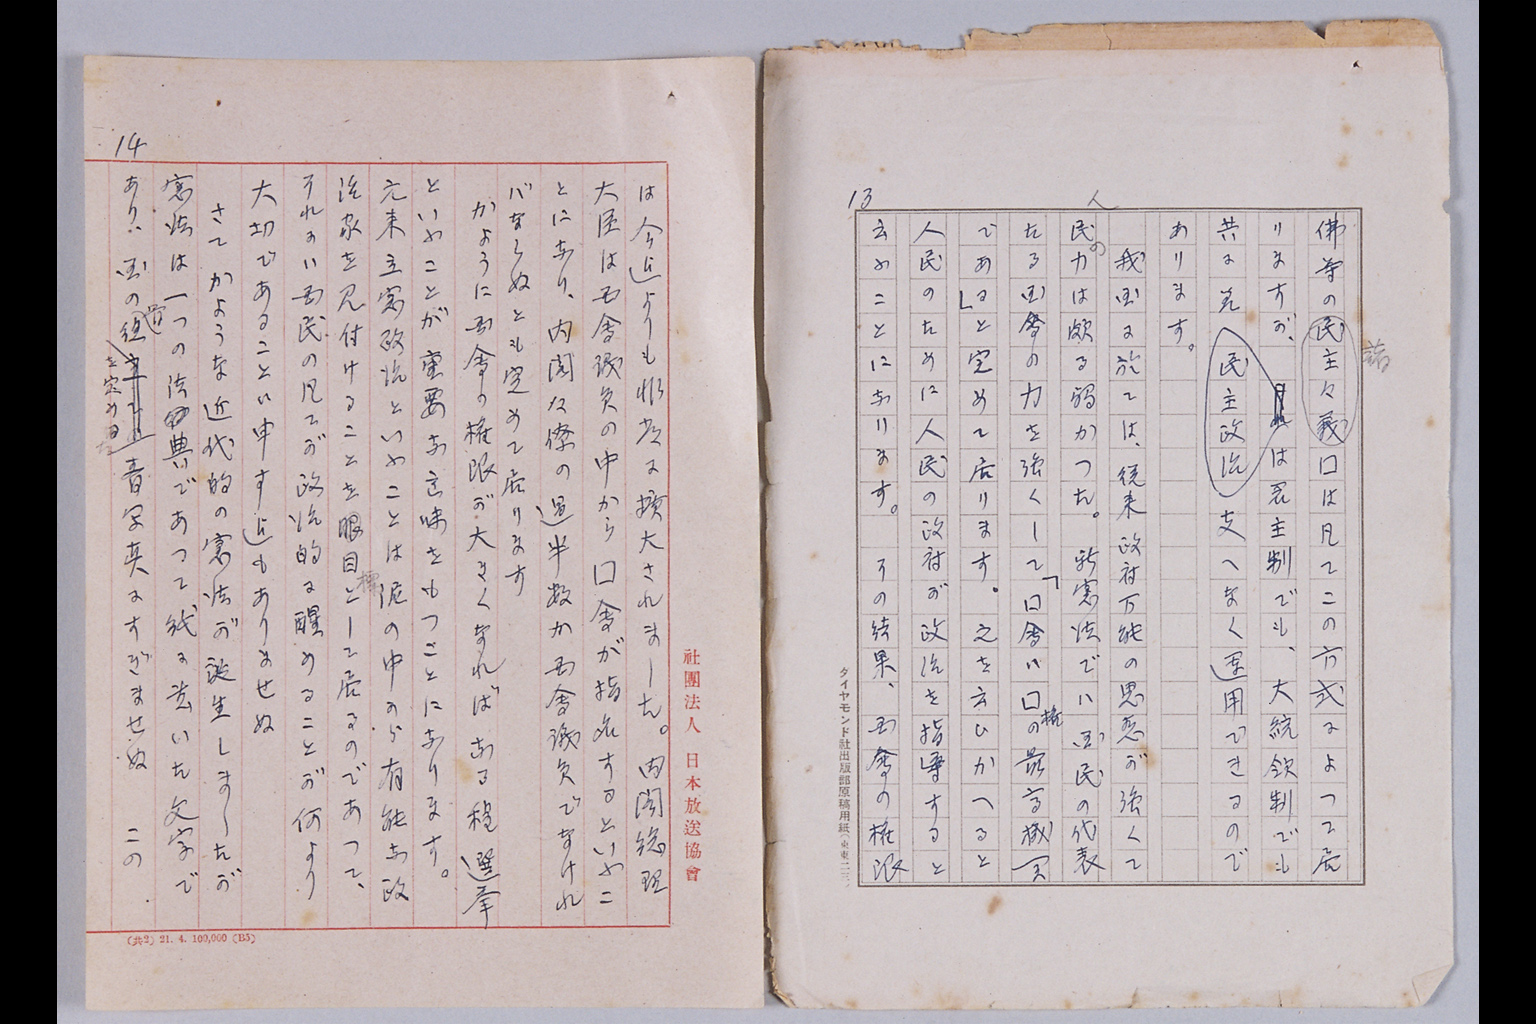 13
人
諸
佛等の民主々義口は凡てこの方式によつて居
りますが、は君主制でも、大統領制でも
共に 民主政治 支へなく運用できるので
あります。
我国に於ては、従来政府万能の思想が強くて
民の力は頗る弱かつた。新憲法でハ国民の代表
たる国会の力を強くして「口会ハ口の最高機関
権
である」と定めて居ります。之を言ひかへると
人民のために人民の政府が政治を指導すると
云ふことにあります。その結果、国会の権限
ダイヤモンド社出版部原稿用紙
14
は今迄よりも非常に擴大されました。内閣総理
大臣は国会議員の中から口会が指名するといふこ
とにあり、内閣々僚の過半数か国会議員でなけれ
バならぬとも定めて居ります
かように国会の権限が大きくなればある程選挙
といふことが重要な意味をもつことにあります。
元来立憲政治といふことは 民の中から有能な政
治家を見付けることを眼目として居るのであつて、
標
それにハ国民の凡てが政治的に醒めることが何より
大切であることハ申す迄もありませぬ
さてかような近代的の憲法が誕生しましたが
憲法は一つの法典であつて紙に書いた文字で
あり、国の
を定めた
青写真にすぎませぬ この
社團法人 日本放送協會
(共2) 21. 4. 100,000 (B5)